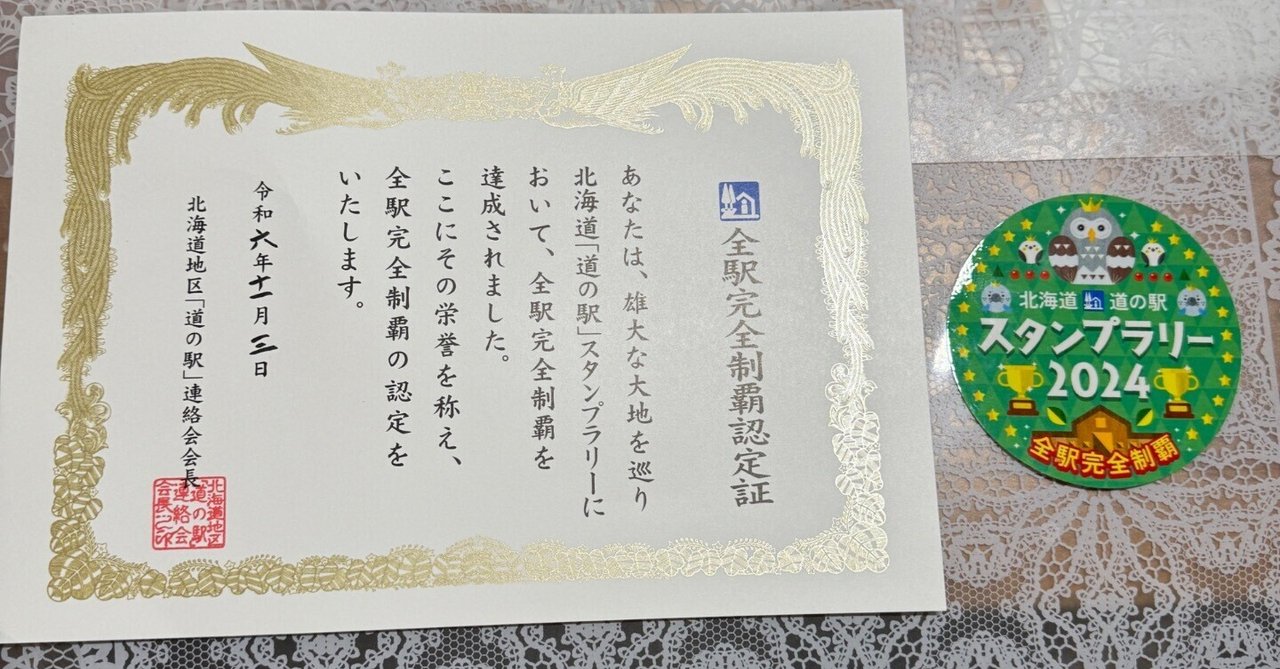 全駅完全制覇認定証
あなたは、雄大な大地を巡り
北海道「道の駅」スタンプラリーに
おいて、全駅完全制覇を
達成されました。
ここにその栄誉を称え、
全駅完全制覇の認定を
いたします。
令和六年十一月三日
北海道地区「道の駅」連絡会会長
北海道地区
道の駅
連絡会
会長之印
北海道 道の駅
スタンプラリー
2024
全駅完全制覇